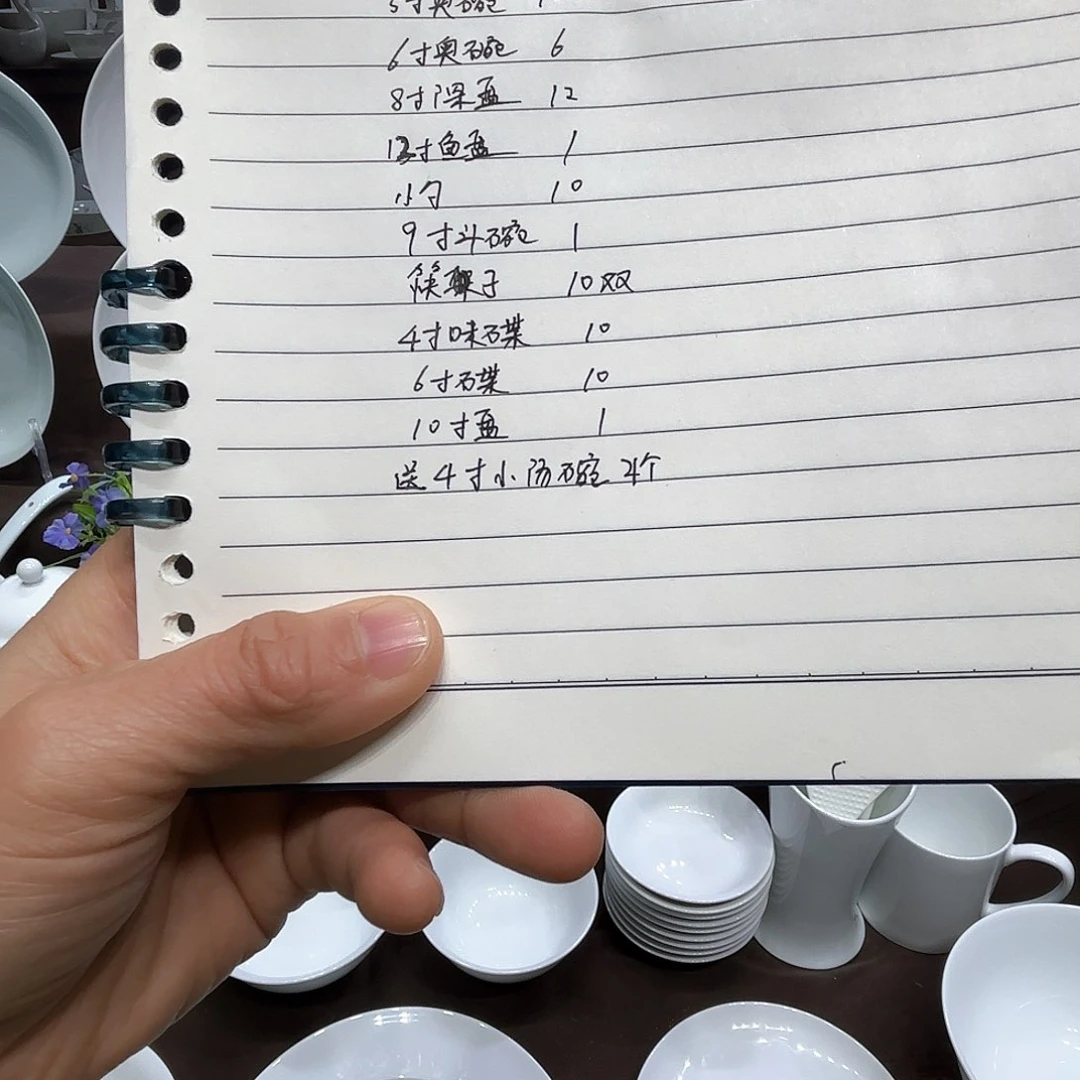 5寸奥碗
6寸奥碗 6
8寸深盘 12
12寸鱼盘 1
小勺 10
9寸斗碗 1
筷子 10双
4寸味碟 10
6寸碟 10
10寸盘 1
送4寸小汤碗 4个